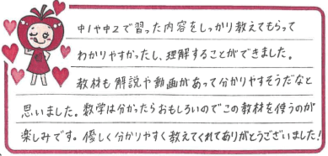 中1や中2で習った内容をしっかり教えてもらって
わかりやすかったし、理解することができました。
教材も解説や動画があって分かりやすそうだなと
思いました。数学は分かったらおもしろいのでこの教材を使うのが
楽しみです。優しく分かりやすく教えてくれてありがとうございました!